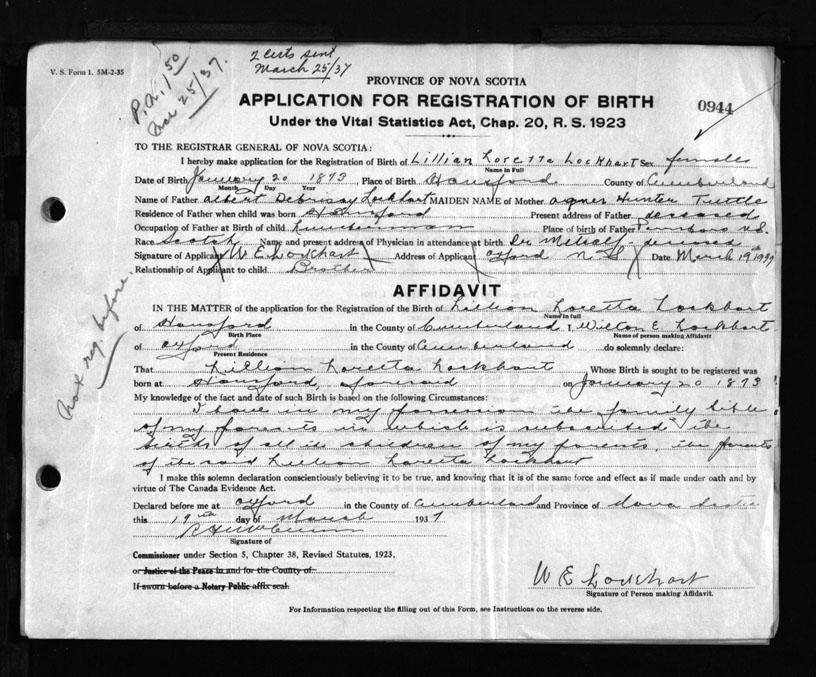 V. S. Form 1. 5M-2-35
P.a. 1 50
Mar 25/37.
2 Certs sent
March 25/37
PROVINCE OF NOVA SCOTIA
APPLICATION FOR REGISTRATION OF BIRTH
0944
Under the Vital Statistics Act, Chap. 20, R. S. 1923
TO THE REGISTRAR GENERAL OF NOVA SCOTIA:
I hereby make application for the Registration of Birth of Lillian Loretta Lockhart Sex female
Name in Full
Date of Birth January 20 1873 Place of Birth Hansford County of Cumberland
Month Day Year
Name of Father Albert Debrisay Lockhart MAIDEN NAME of Mother Agnes Hunter Tuttle
Residence of Father when child was born Hansford Present address of Father deceased
Occupation of Father at Birth of child Lumberman Place of birth of Father Parrsboro N.S.
Race Scotch Name and present address of Physician in attendance at birth Dr Metcalf - deceased
Signature of Applicant W E Lockhart Address of Applicant Oxford N S Date March 19th 1937
Relationship of Applicant to child Brother
Not reg. before.
AFFIDAVIT
IN THE MATTER of the application for the Registration of the Birth of Lillian Loretta Lockhart
Name in full
of Hansford in the County of Cumberland I, Wilton E Lockhart
Birth Place Name of person making Affidavit
of Oxford in the County of Cumberland do solemnly declare:
Present Residence
That Lillian Loretta Lockhart Whose Birth is sought to be registered was
born at Hansford, aforesaid on January 20 1873
My knowledge of the fact and date of such Birth is based on the following Circumstances:
I have in my possession the family bible
of my parents in which is subscribed the
births of all the children of my parents, the parents
of the said Lillian Loretta Lockhart
I make this solemn declaration conscientiously believing it to be true, and knowing that it is of the same force and effect as if made under oath and by
virtue of The Canada Evidence Act.
Declared before me at Oxford in the County of Cumberland and Province of Nova Scotia
this 19th day of March 1937
Signature of
Commissioner under Section 5, Chapter 38, Revised Statutes, 1923,
or Justice of the Peace in and for the County of
If sworn before a Notary Public affix seal.
W E Lockhart
Signature of Person making Affidavit.
For Information respecting the filling out of this Form, see Instructions on the reverse side.